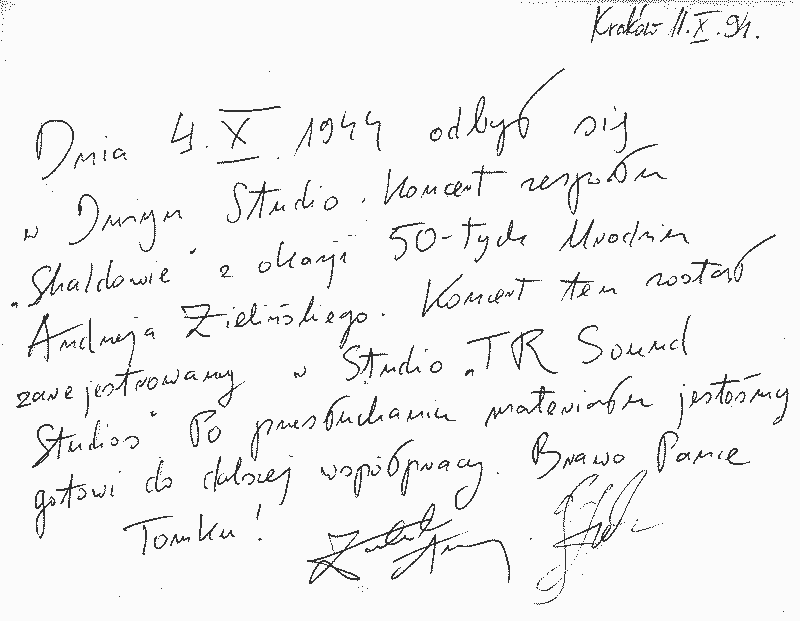 Kraków 11.X.94.
Dnia 4.X.1944 odbył się
w Dużym Studio. Koncert zespołu
„Skaldowie” z okazji 50-tych Urodzin
Andrzeja Zielińskiego. Koncert ten został
zarejestrowany w Studio „TR Sound
Studios” Po przesłuchaniu materiału jesteśmy
gotowi do dalszej współpracy. Brawo Panie
Tomku!